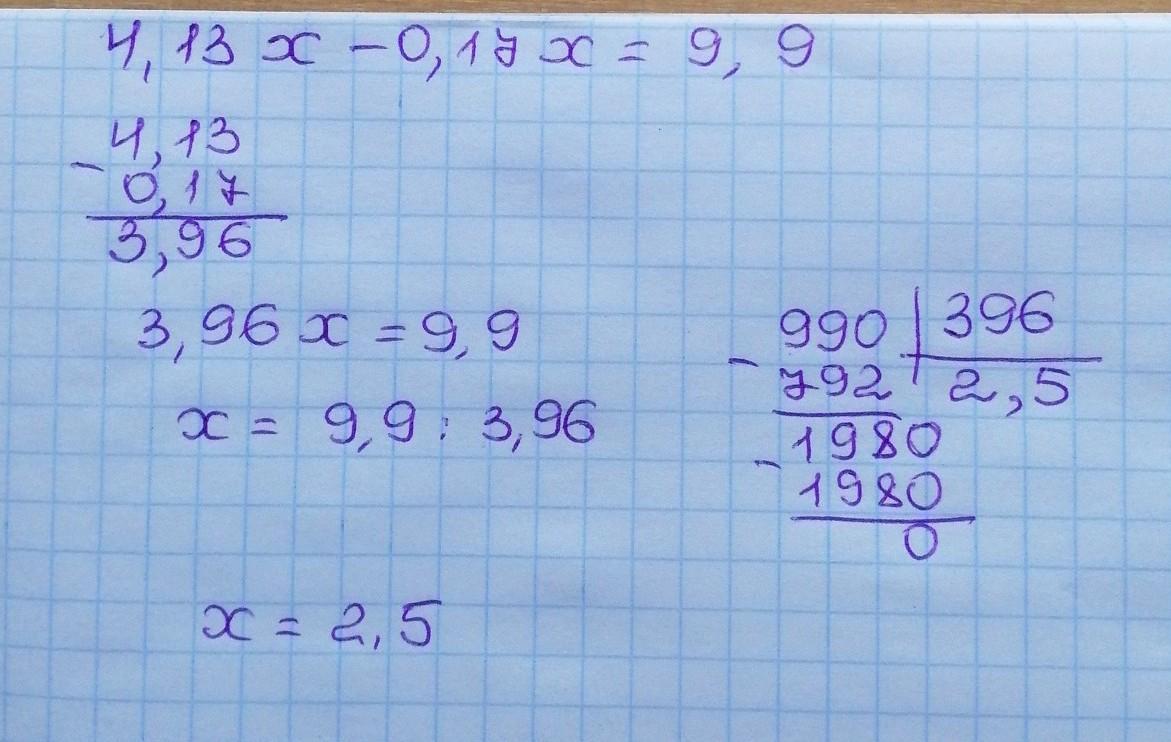 4,13 x - 0,17 x = 9,9
4,13
- 0,17
3,96
3,96 x = 9,9
x = 9,9 : 3,96
990 | 396
- 792 | 2,5
1980
- 1980
0
x = 2,5